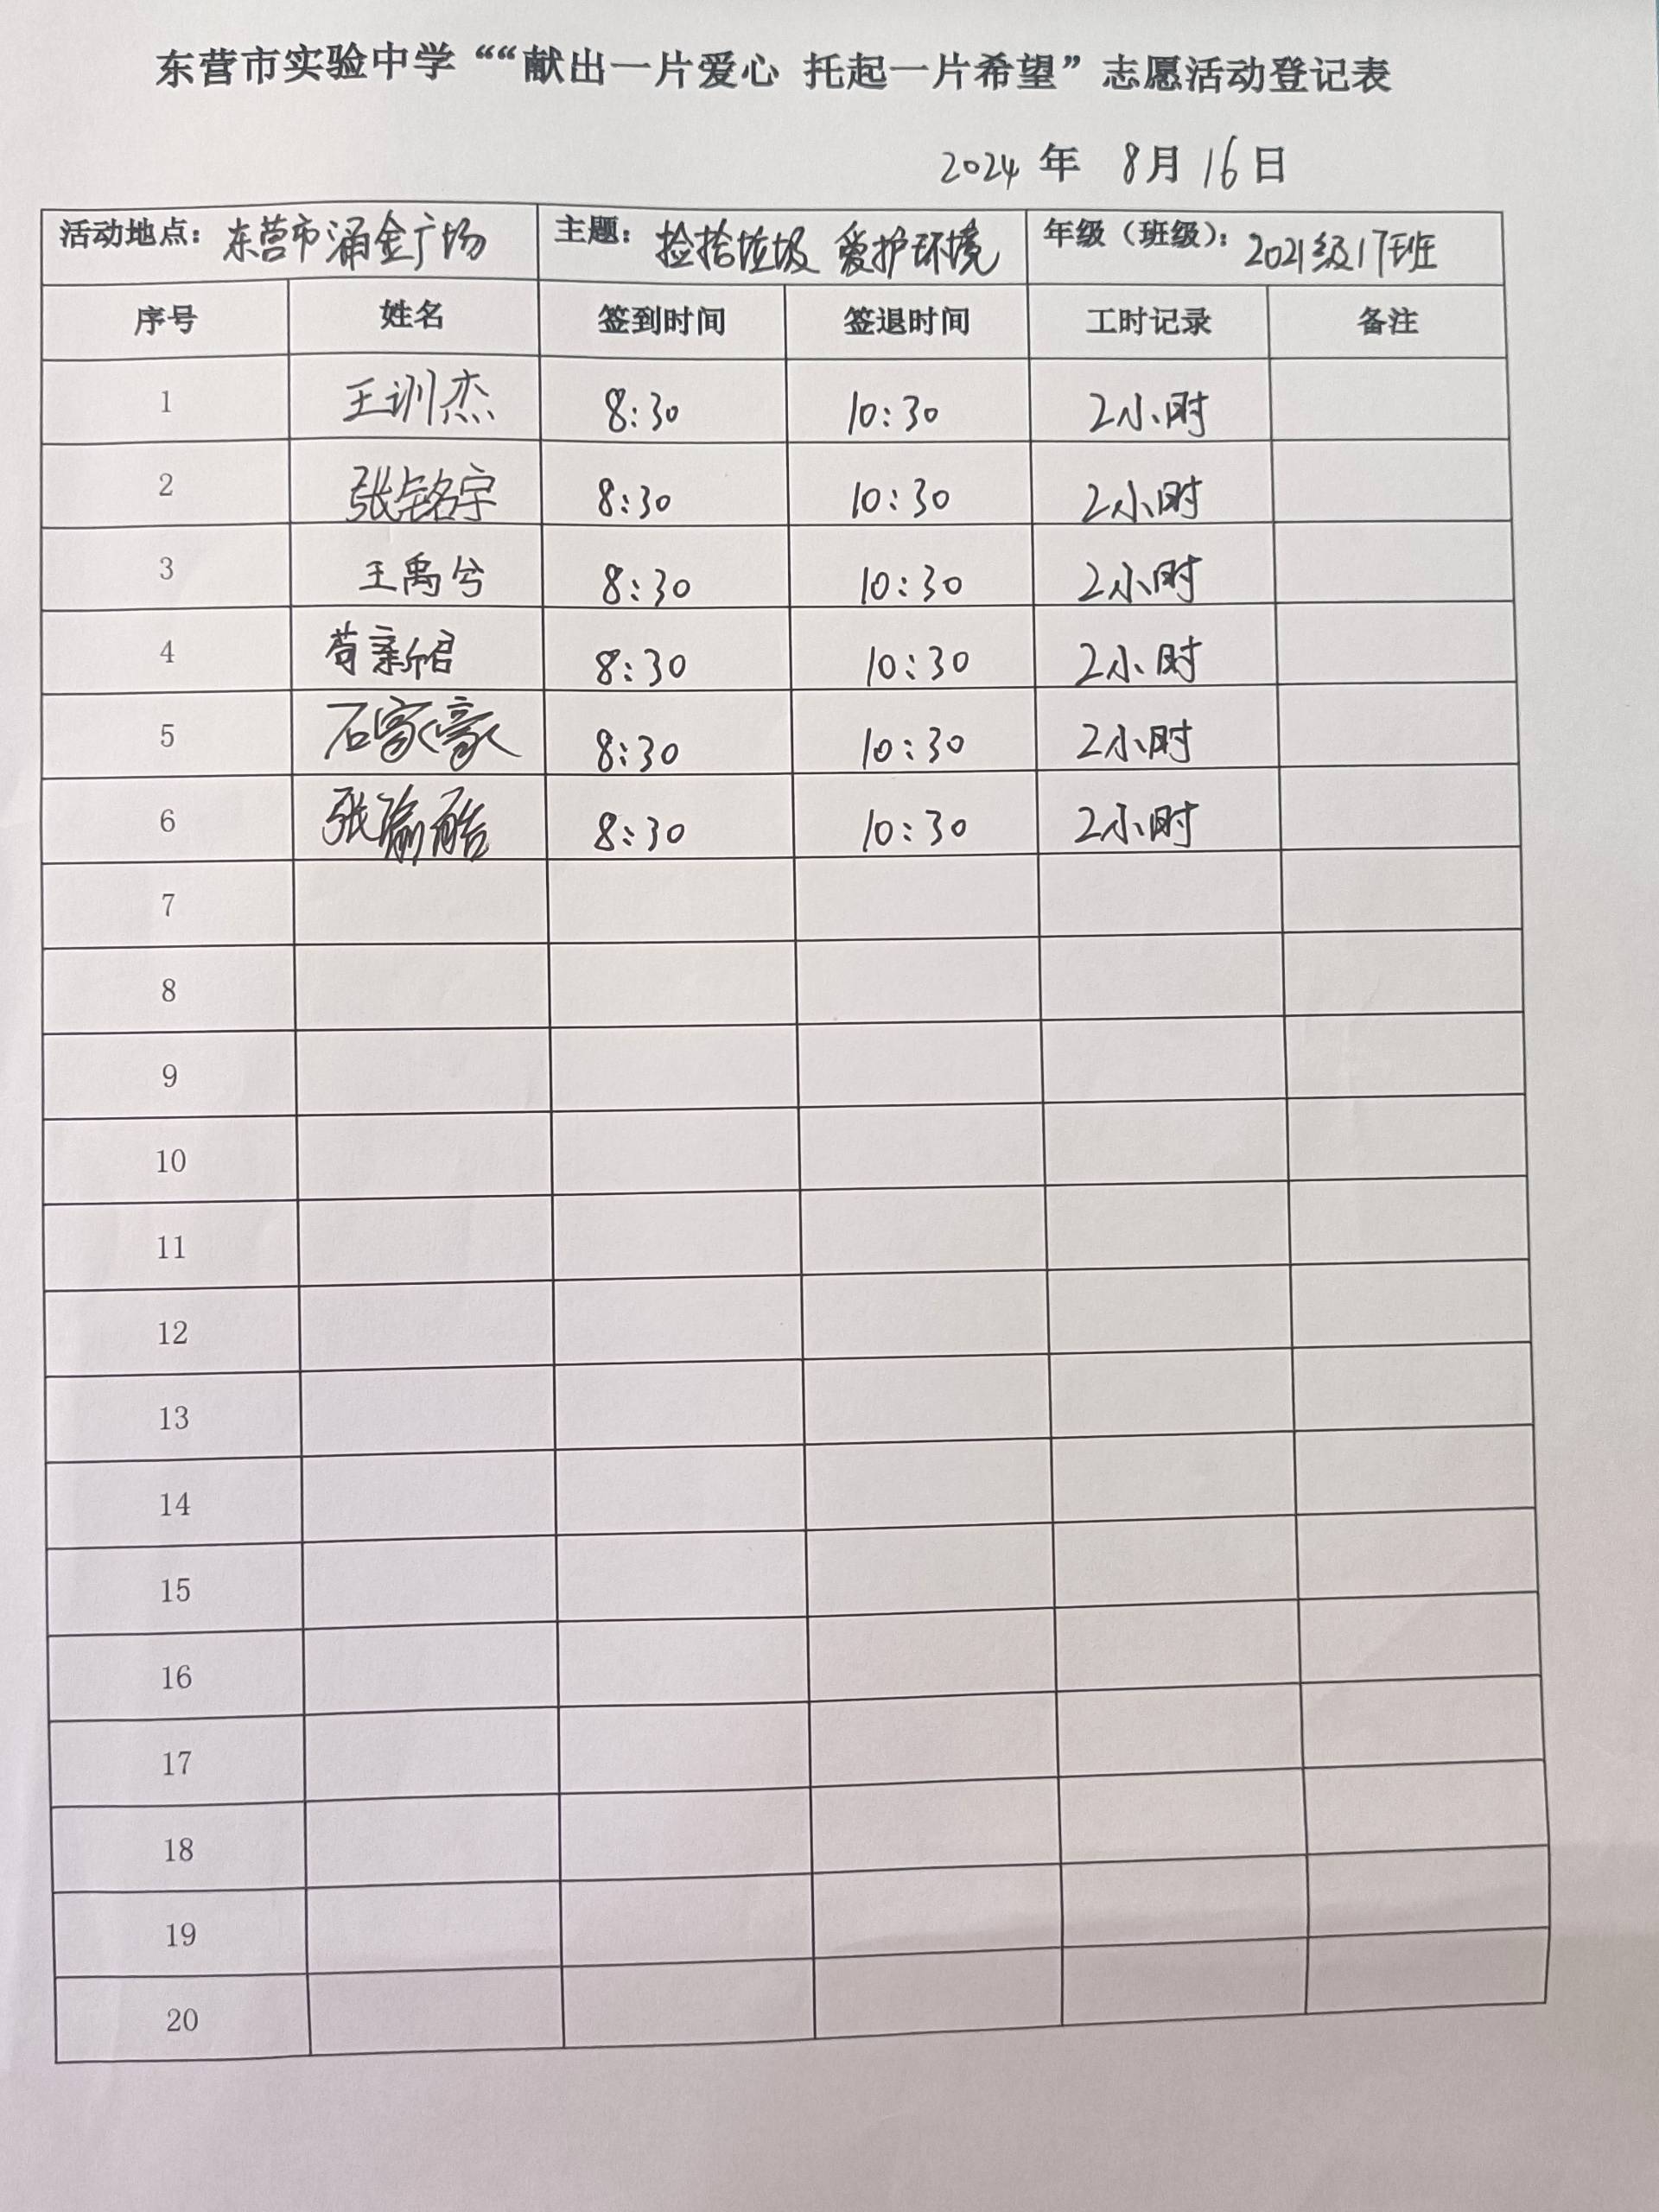 东营市实验中学““献出一片爱心 托起一片希望”志愿活动登记表
2024 年 8月 16日
活动地点：东营市涌金广场 主题：捡拾垃圾 爱护环境 年级（班级）：2021级17班
序号 姓名 签到时间 签退时间 工时记录 备注
1 王训杰 8:30 10:30 2小时
2 张铭宇 8:30 10:30 2小时
3 王禹兮 8:30 10:30 2小时
4 苟新君 8:30 10:30 2小时
5 石家豪 8:30 10:30 2小时
6 张瑜皓 8:30 10:30 2小时
7
8
9
10
11
12
13
14
15
16
17
18
19
20